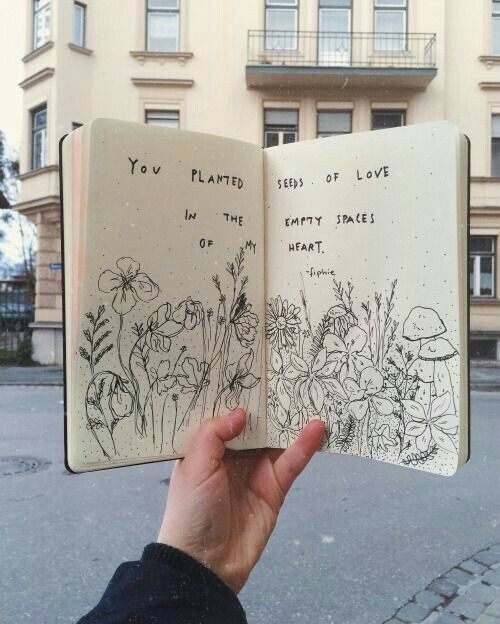 YOU PLANTED SEEDS OF LOVE
IN THE EMPTY SPACES
OF MY HEART.
-fiphie